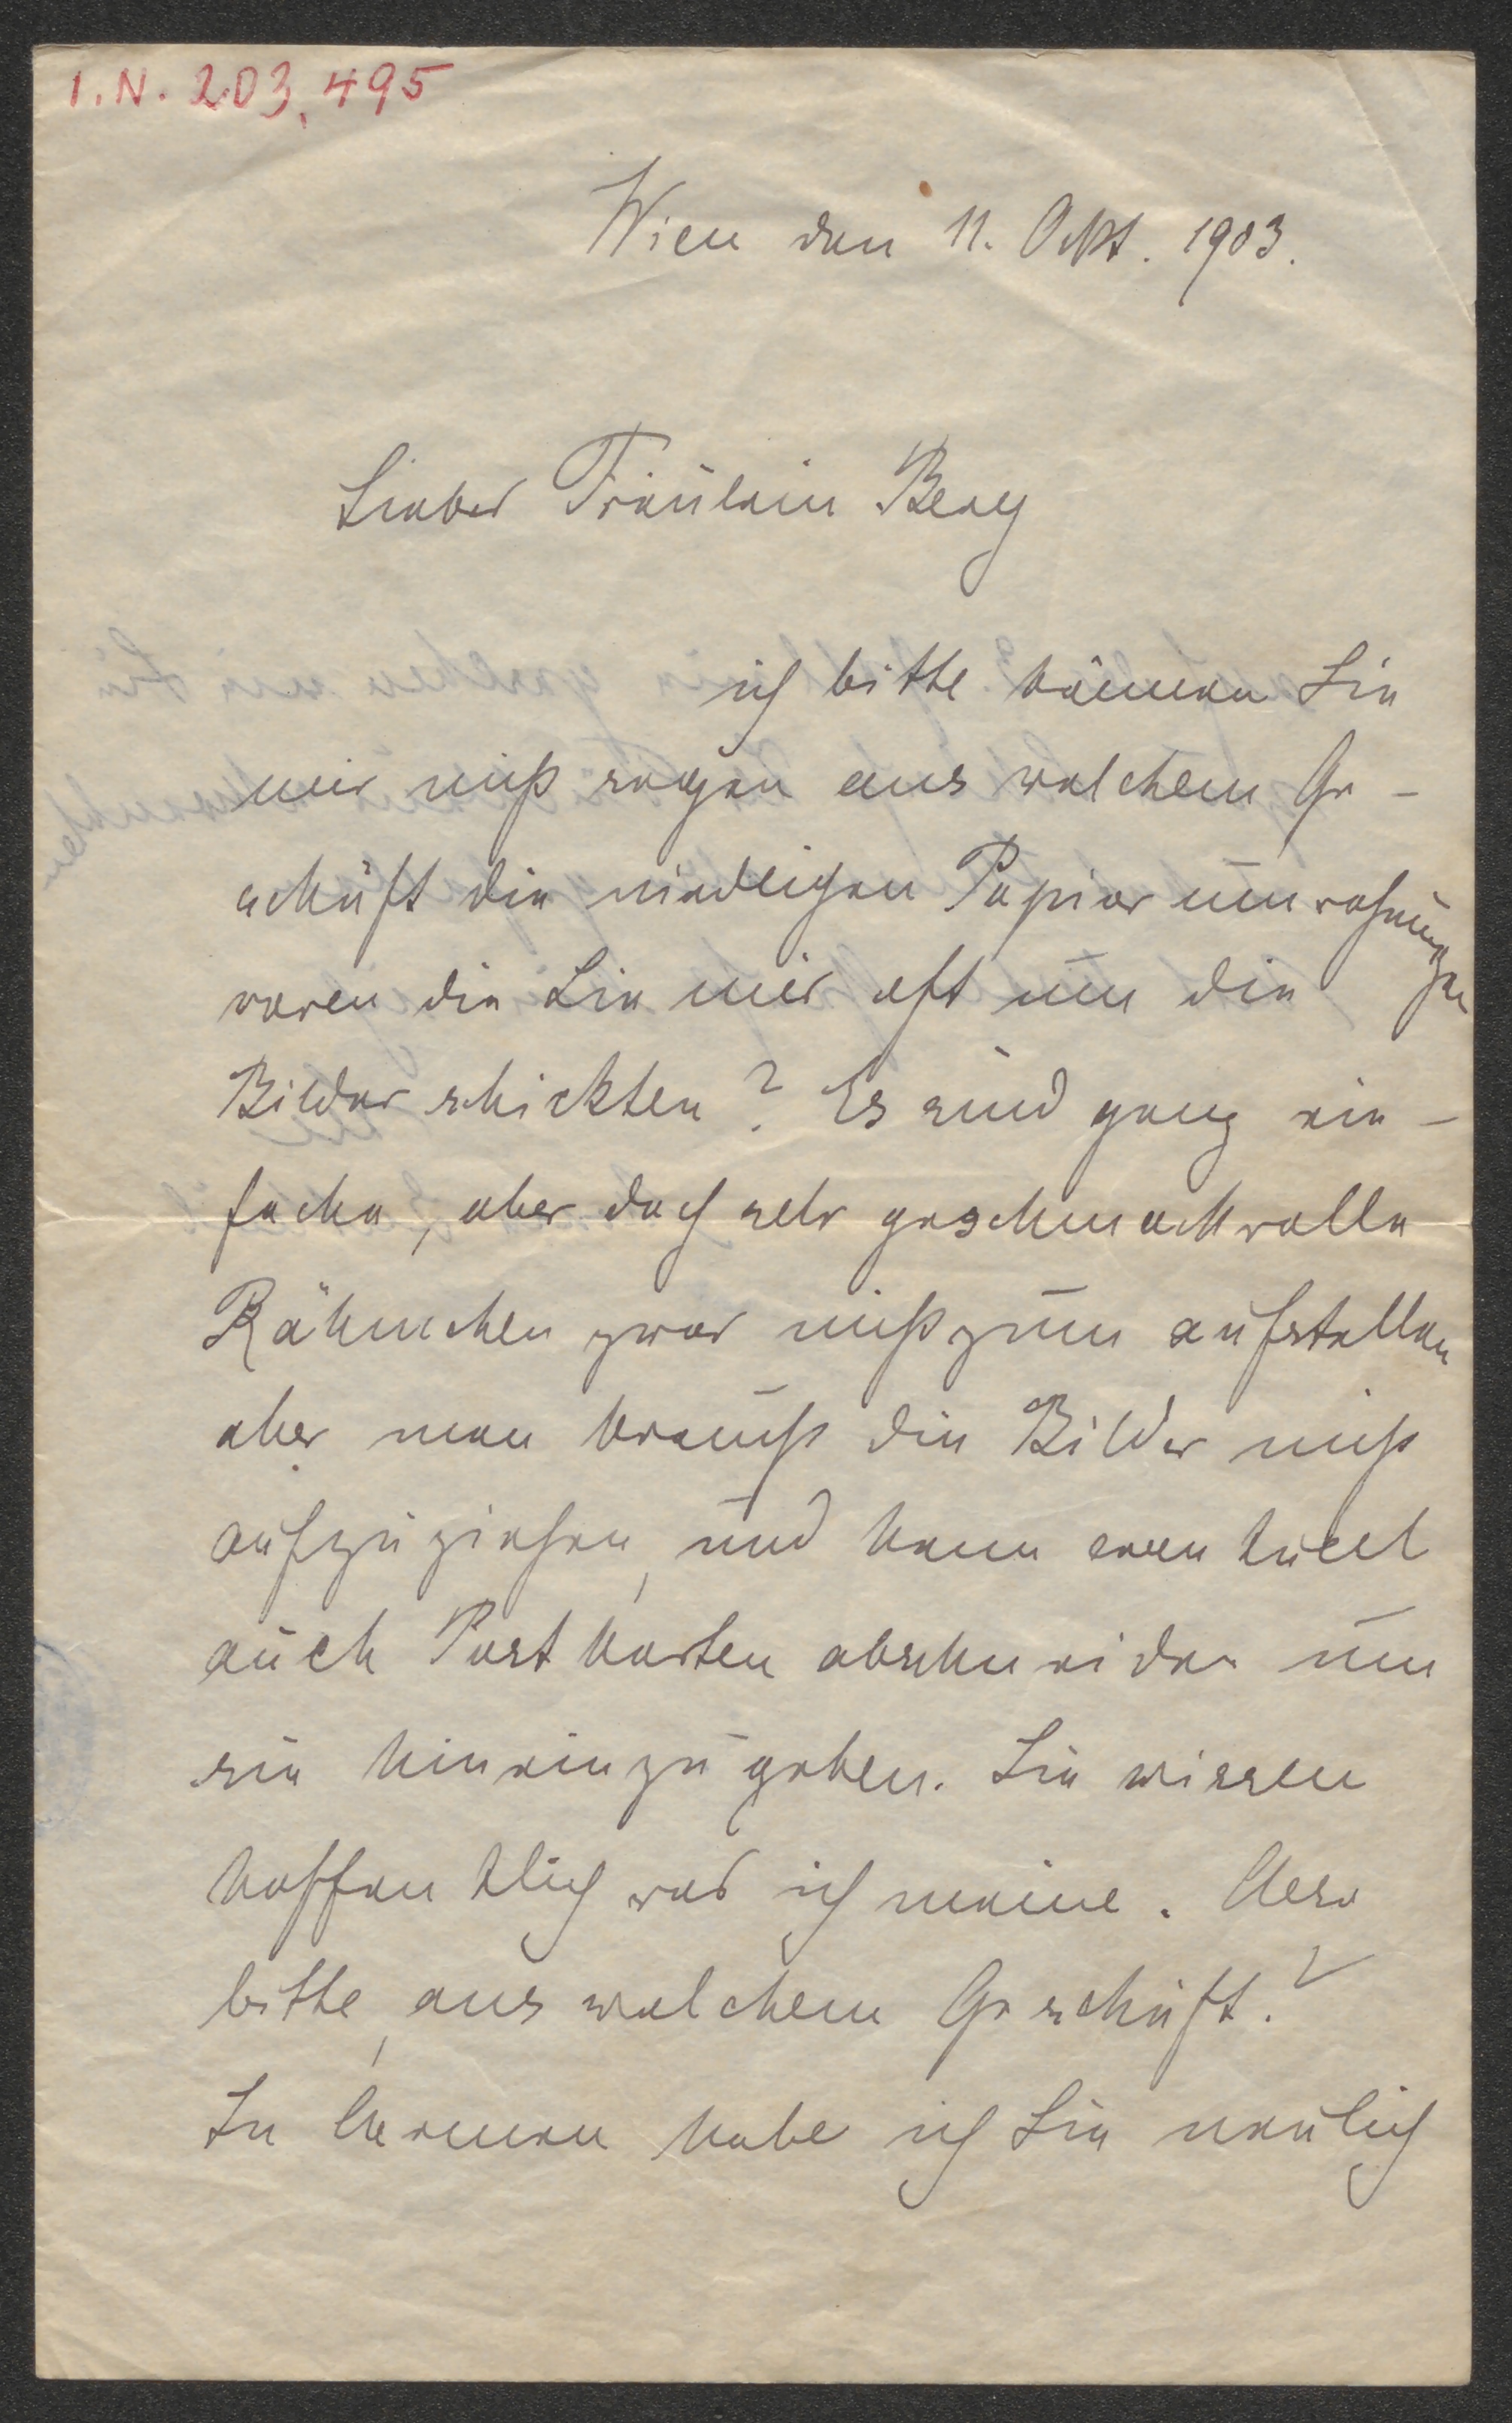 I.N. 203,495
Wien den 11. Okt. 1903.
Liebes Fräulein Berg
ich bitte können Sie
mir nicht sagen aus welchem Ge-
schäft die niedlichen Papierumrahmungen
waren die Sie mir oft um die
Bilder schickten? Es sind ganz ein-
fache, aber doch sehr geschmackvolle
Rähmchen zwar nicht zum aufstellen
aber man braucht die Bilder nicht
aufzuziehen, und kann eventuell
auch Postkarten abschneiden um
sie hineinzugeben. Sie wissen
hoffentlich was ich meine. Also
bitte, aus welchem Geschäft?
In habe ich Sie neulich